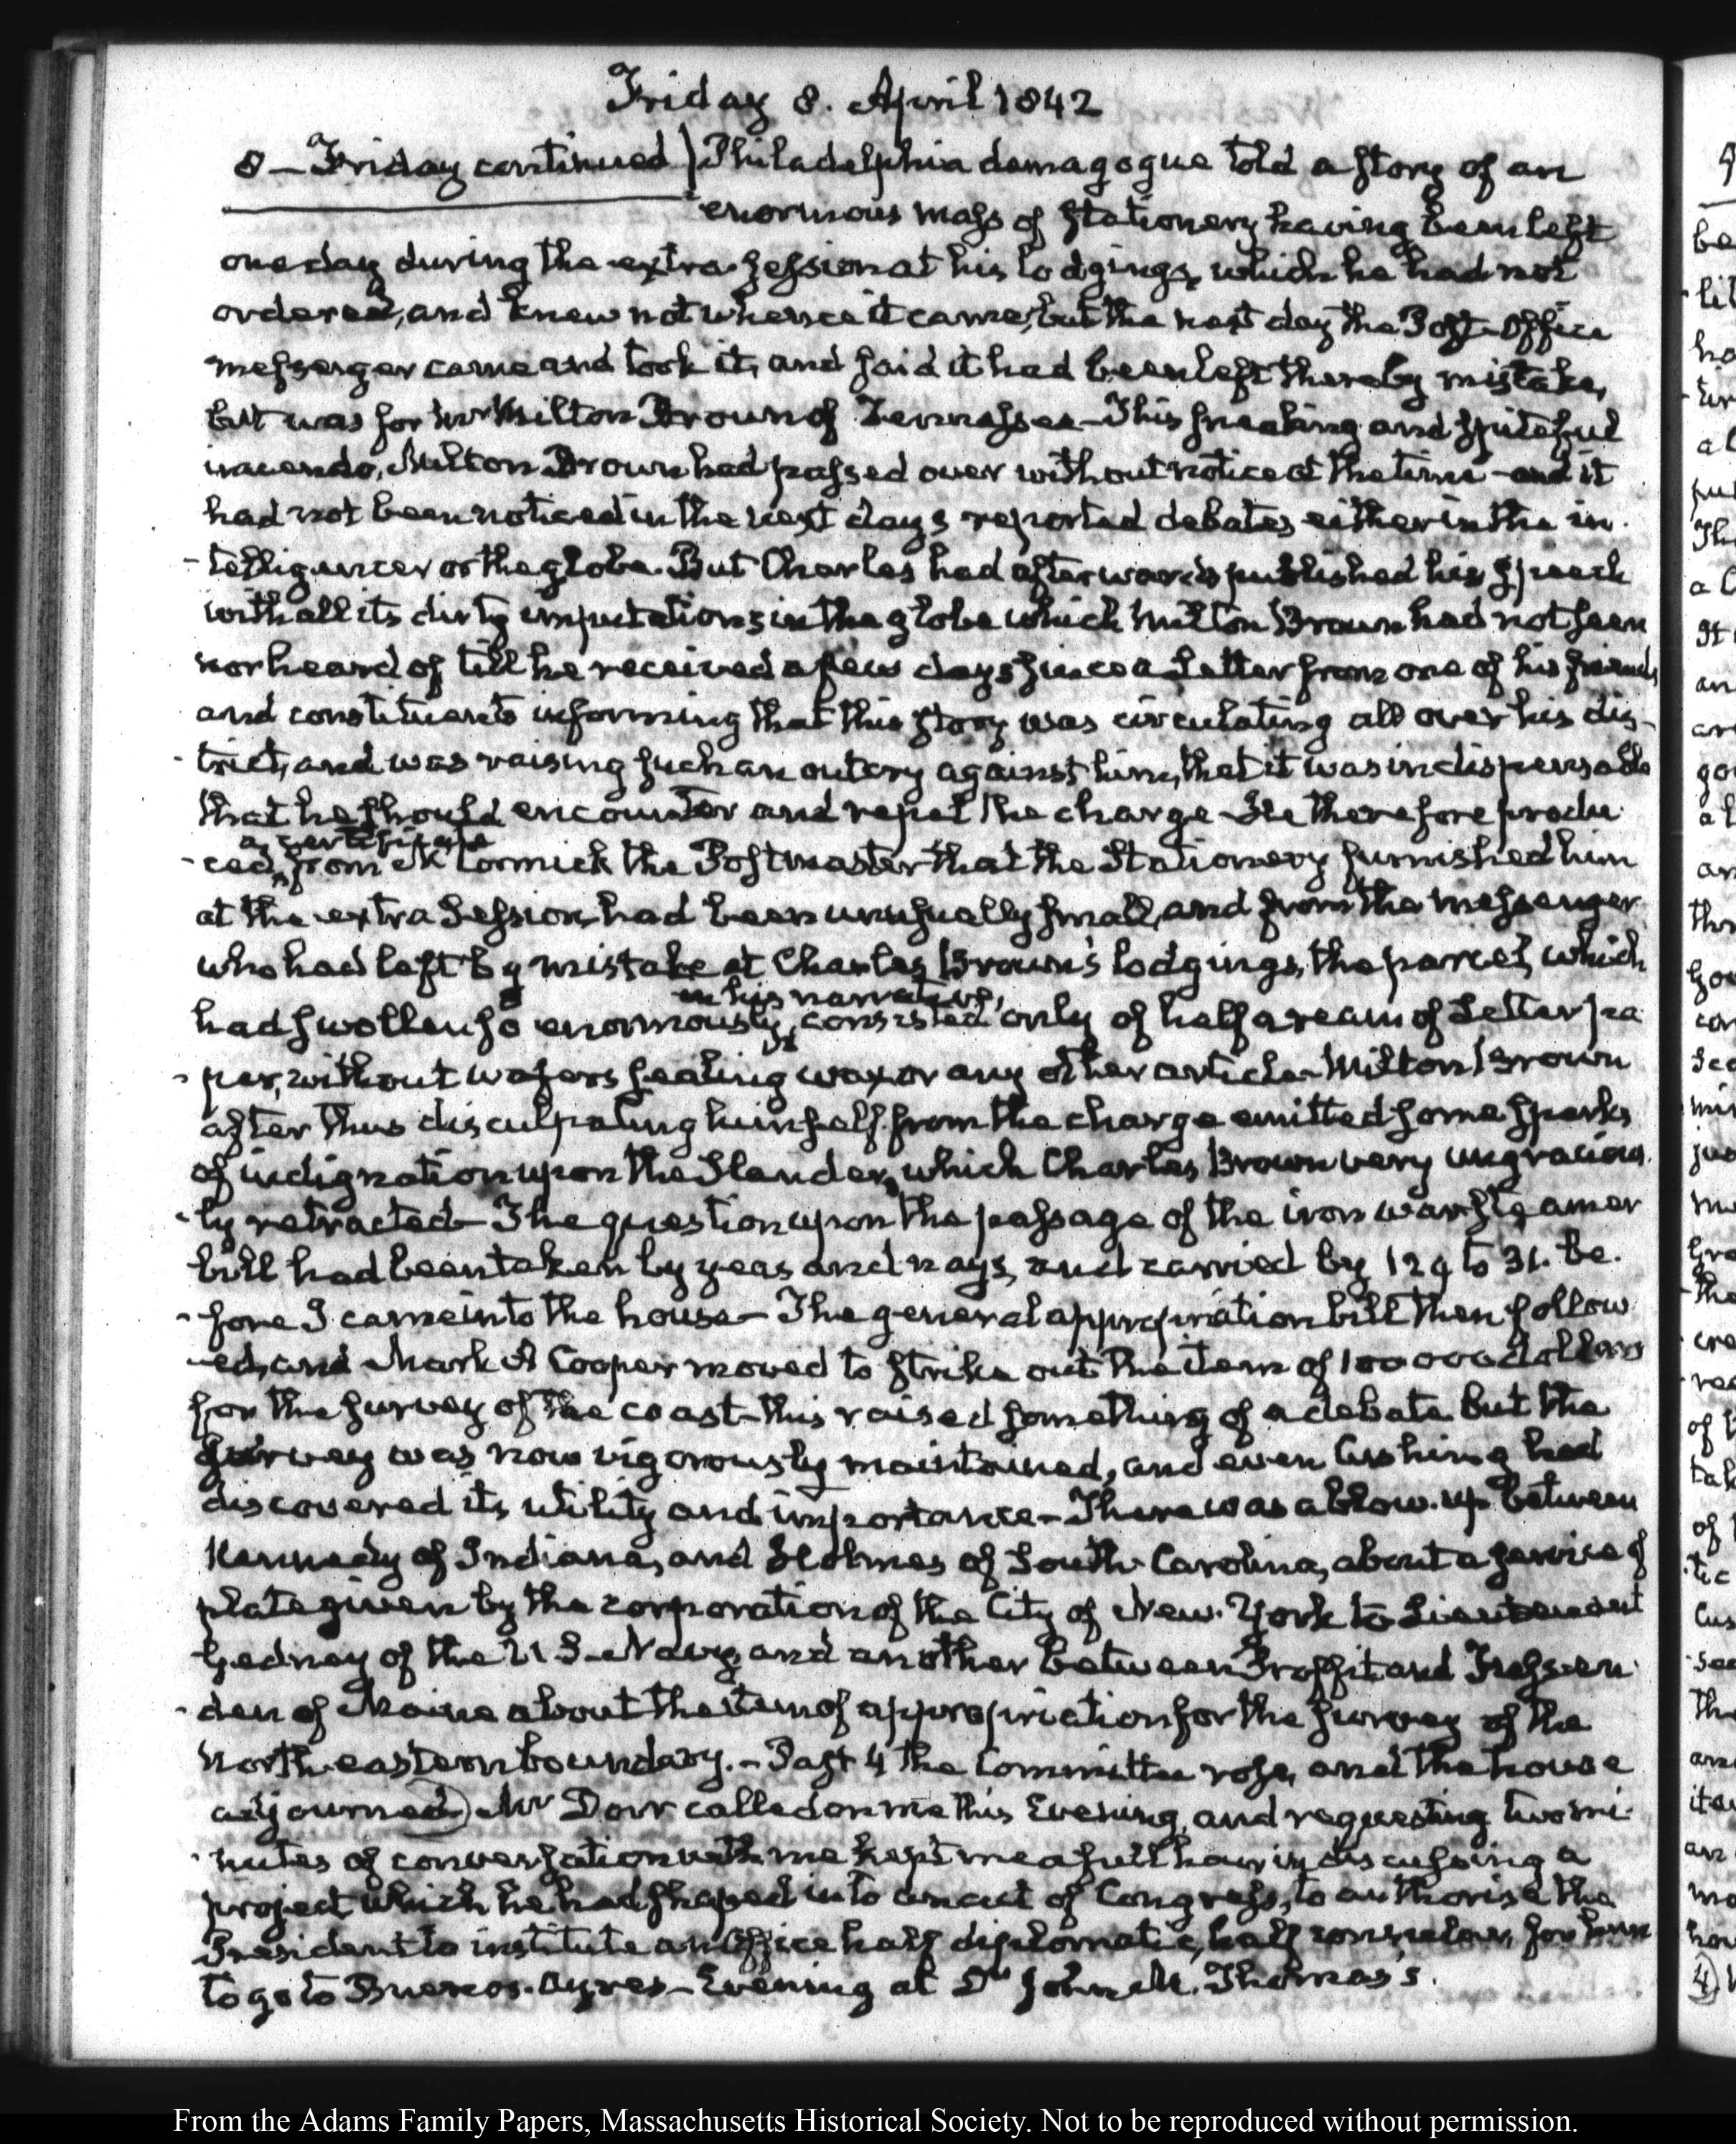 Friday 8. April 1842
8 — Friday continued) Philadelphia demagogue told a story of an
enormous mass of Stationery having been left
one day during the extra-session at his lodgings, which he had not
ordered, and knew not whence it came, but the next day the Post-Office
messenger came and took it, and said it had been left there by mistake,
but was for Mr Milton Brown of Tennessee — This sneaking and spiteful
inuendo, Milton Brown had passed over without notice at the time — and it
had not been noticed in the next day's reported debates either in the in-
-telligencer or the globe. But Charles had afterwards published his speech
with all its dirty imputations in the globe which Milton Brown had not seen
nor heard of till he received a few days since a Letter from one of his friends
and constituents informing that this story was circulating all over his dis-
-trict, and was raising such an outcry against him, that it was indispensable
that he should encounter and repel the charge — He therefore produ-
a certificate
-ced, from McCormick the Postmaster that the Stationery furnished him
at the extra Session, had been unusually small, and from the messenger
who had left by mistake at Charles Brown's lodgings, the parcel, which
in his narrative,
had swollen so enormously, consisted only of half a ream of Letter pa-
-per, without wafers sealing wax or any other article — Milton Brown
after thus disculpating himself from the charge emitted some sparks
of indignation upon the Slander, which Charles Brown very ungracious-
-ly retracted — The question upon the passage of the iron war-steamer
bill had been taken by yeas and nays, and carried by 129 to 31. be-
-fore I came into the house — The general appropriation bill then follow-
-ed, and Mark A Cooper moved to strike out the item of 100000 dollars
for the survey of the coast — this raised something of a debate but the
survey was now vigorously maintained, and even Cushing had
discovered its utility and importance — There was a blow-up between
Kennedy of Indiana, and Holmes of South-Carolina, about a service of
plate given by the corporation of the City of New-York to Lieutenant
Gedney of the U S Navy and another between Proffit and Fessen-
-den of Maine about the item of appropriation for the survey of the
North-eastern boundary. — Past 4 the Committee rose, and the house
adjourned) Mr Dorr called on me this Evening, and requesting two mi-
-nutes of conversation with me kept me a full hour in discussing a
project which he had shaped into an act of Congress, to authorise the
President to institute an Office half diplomatic, half consular, for him
to go to Buenos-Ayres — Evening at Dr John M. Thomas's.
From the Adams Family Papers, Massachusetts Historical Society. Not to be reproduced without permission.